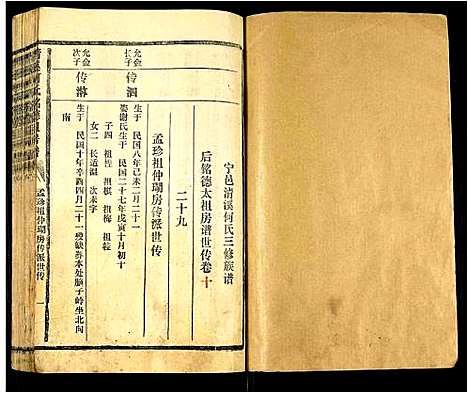 宁邑清溪何氏三修族谱
后铭德太祖房谱世传卷十
二十九
孟珍祖仲瑚房传派世传
允金
长子
传泗
生于 民国八年己未二月二十一
娶谢氏生于 民国二十七年戊寅十月初十
子四 祖胜 祖棋 祖梅 祖粒
女二 长道温 次未字
允金
次子
传游
生于 民国十年辛酉四月二十一殁缺葬本处脑子岭坐北向
南
孟珍祖仲瑚房传派世传
一